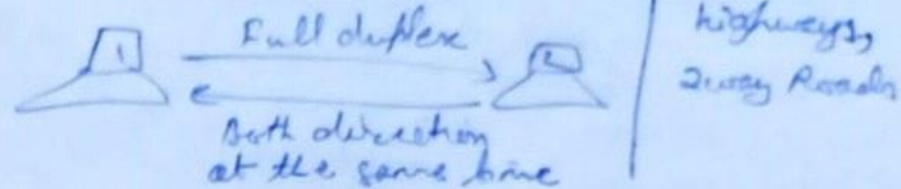 Full duplex
1
2
Both direction
at the same time
highways,
2way Roads